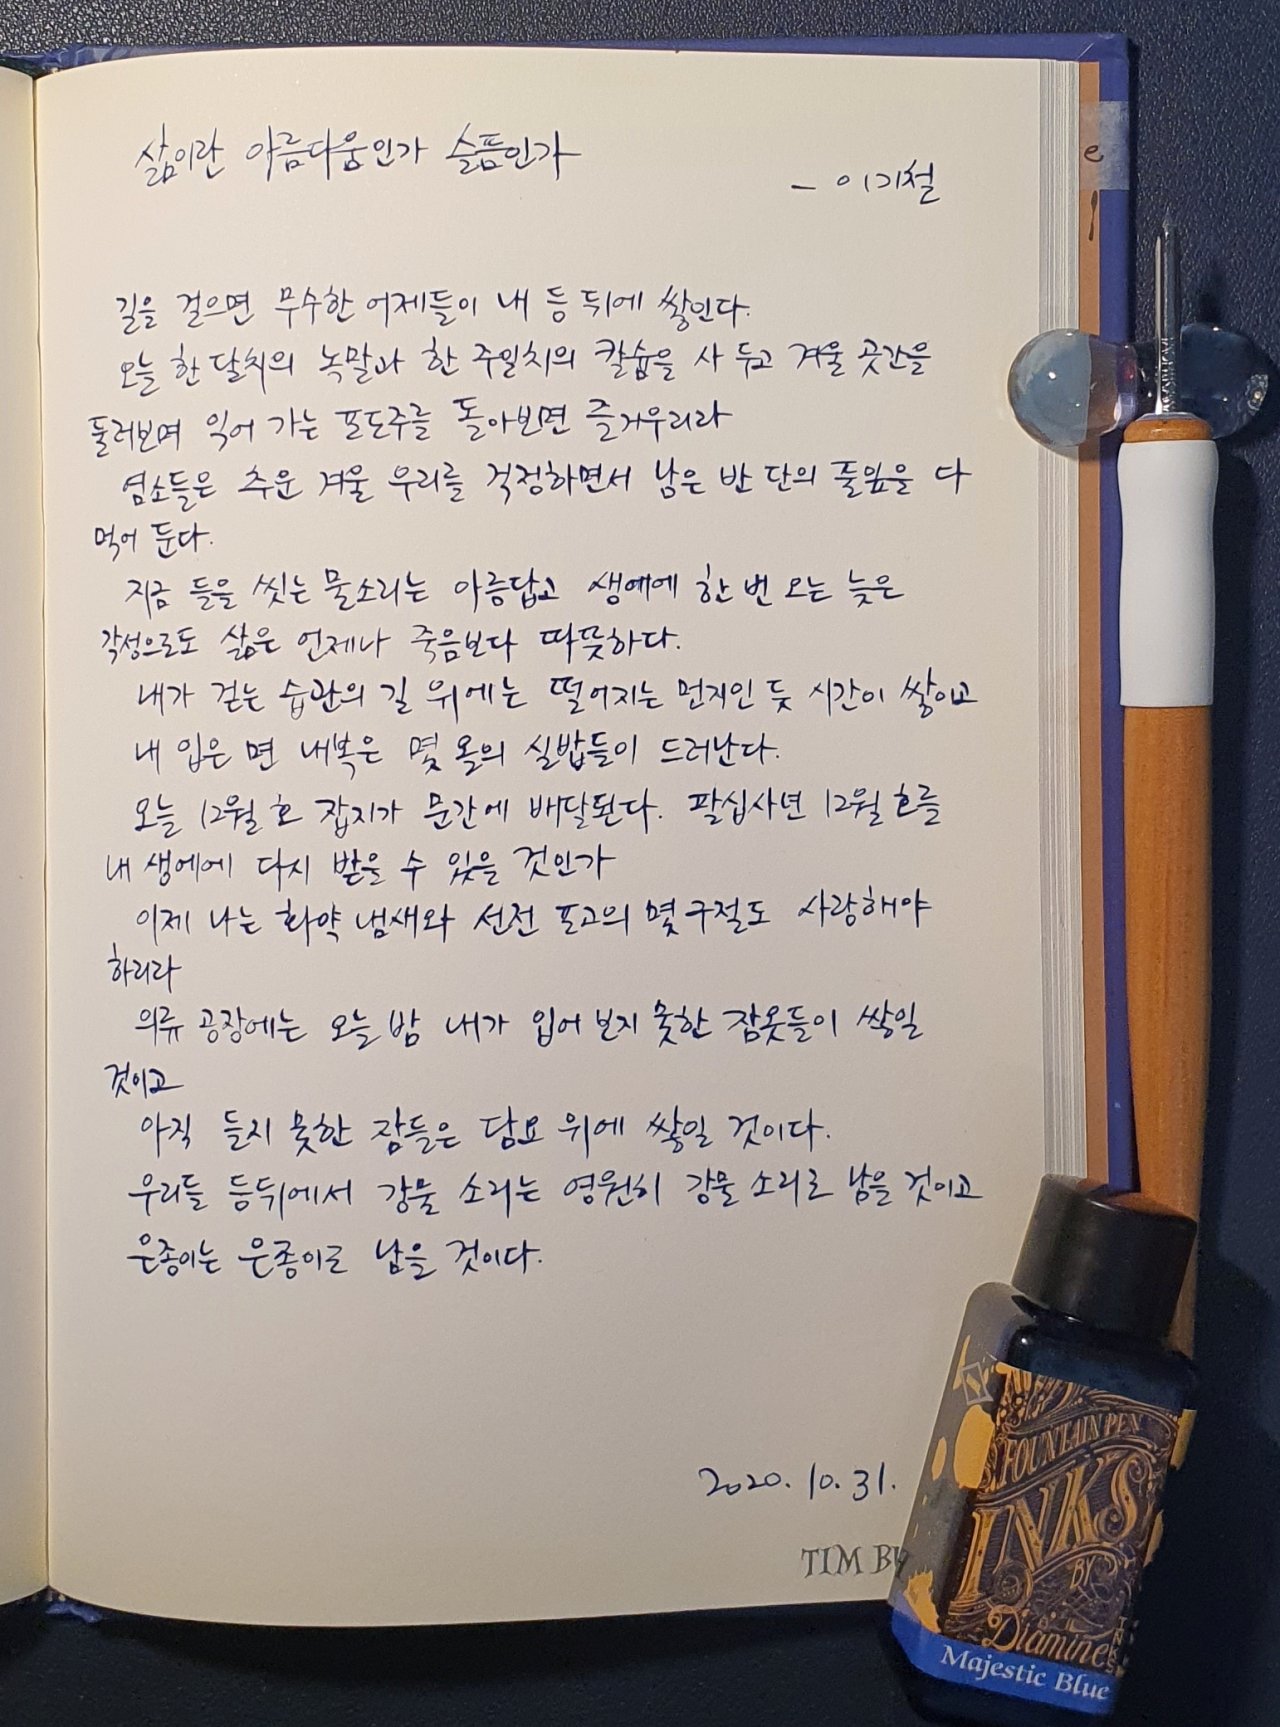 삶이란 아름다움인가 슬픔인가
- 이기철
길을 걸으면 무수한 어제들이 내 등 뒤에 쌓인다.
오늘 한 달치의 녹말과 한 주일치의 칼슘을 사 두고 겨울 곳간을
둘러보며 익어 가는 포도주를 돌아보면 즐거우리라
염소들은 추운 겨울 우리를 걱정하면서 남은 반 단의 풀잎을 다
먹어 둔다.
지금 들을 씻는 물소리는 아름답고 생애에 한 번 오는 늦은
각성으로도 삶은 언제나 죽음보다 따뜻하다.
내가 걷는 습관의 길 위에는 떨어지는 먼지인 듯 시간이 쌓이고
내 입은 면 내복은 몇 올의 실밥들이 드러난다.
오늘 12월 호 잡지가 문간에 배달된다. 팔십사년 12월 호를
내 생애에 다시 받을 수 있을 것인가
이제 나는 화약 냄새와 선전 포고의 몇 구절도 사랑해야
하리라
의류 공장에는 오늘 밤 내가 입어 보지 못한 잠옷들이 쌓일
것이고
아직 들지 못한 잠들은 담요 위에 쌓일 것이다.
우리들 등뒤에서 강물 소리는 영원히 강물 소리로 남을 것이고
은종이는 은종이로 남을 것이다.
2020. 10. 31.
TIM BU
FOUNTAIN PEN
INKS
BY
Diamine
Majestic Blue